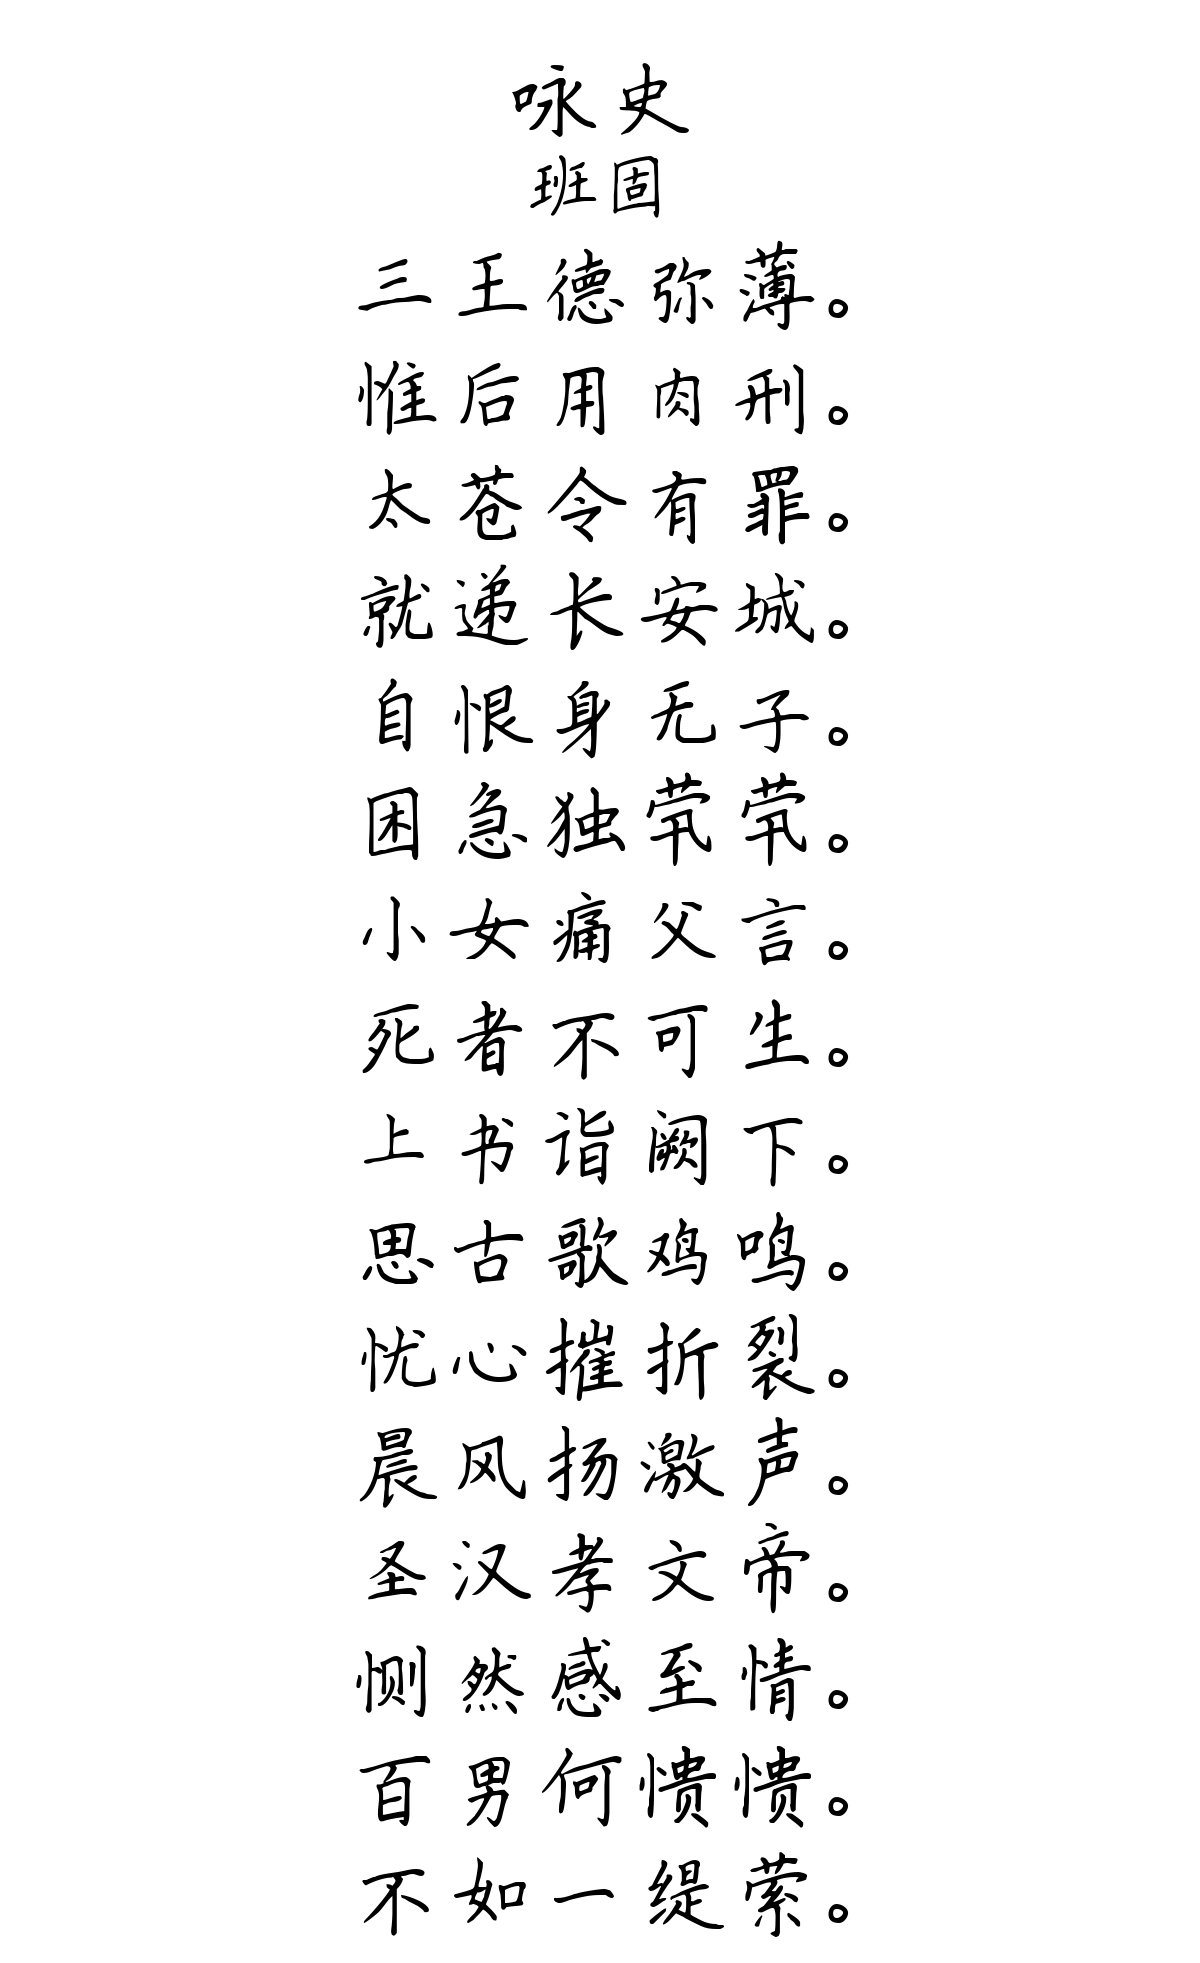 咏史
班固
三王德弥薄。
惟后用肉刑。
太苍令有罪。
就递长安城。
自恨身无子。
困急独茕茕。
小女痛父言。
死者不可生。
上书诣阙下。
思古歌鸡鸣。
忧心摧折裂。
晨风扬激声。
圣汉孝文帝。
恻然感至情。
百男何愦愦。
不如一缇萦。